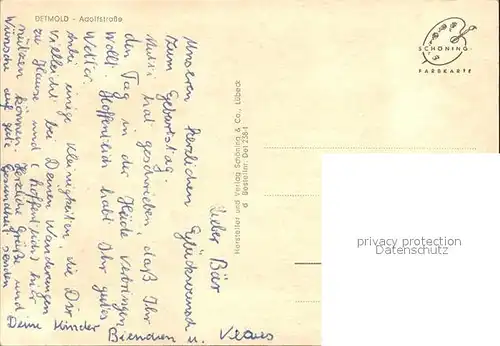 DETMOLD - Adolfstraße
SCHÖNING
FARBKARTE
Hersteller und Verlag Schöning & Co., Lübeck
Besteller: Det 238-1
Lieber Bär
Unseren herzlichen Glückwunsch
zum Geburtstag.
Mutti hat geschrieben daß Ihr
den Tag in der Heide verbringen
wollt. Hoffentlich habt Ihr gutes
Wetter.
Anbei einige Kleinigkeiten, die Dir
vielleicht bei Deinen Wanderungen
zu Hause und (hoffentlich) hier
nützen können. Herzliche Grüße und
Wünsche auf gute Gesundheit senden
Deine Kinder Bienchen u. Klaus
privacy protection
Datenschutz